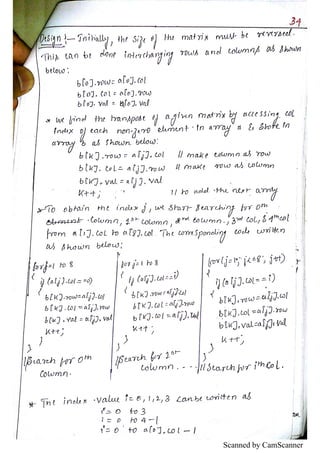 34
Design :- Initially, the Size of the matrix must be reversed.
This can be done interchanging rows and columns as shown
below:
b[0].row = a[0].col
b[0].col = a[0].row
b[0].val = a[0].val
* we find the transpose of a given matrix by accessing col
index of each non-zero element in array a & store in
array b as shown below:
b[k].row = a[j].col // make column as row
b[k].col = a[j].row // make row as column
b[k].val = a[j].val
k++; // to add the next array
* To obtain the index j, we start Searching for 0th
column, 1st column, 2nd column, 3rd col, & 4th col
from a[1].col to a[8].col The corresponding code written
as shown below:
for j=1 to 8
{
if (a[j].col==0)
{
b[k].row=a[j].col
b[k].col=a[j].row
b[k].val=a[j].val
k++;
}
}
//Search for 0th
Column.
for j=1 to 8
{
if (a[j].col==1)
{
b[k].row=a[j].col
b[k].col=a[j].row
b[k].val=a[j].val
k++;
}
}
//Search for 1st
column . . .
for(j=1; j<=8; j++)
{
if (a[j].col==i)
{
b[k].row=a[j].col
b[k].col=a[j].row
b[k].val=a[j].val
k++;
}
}
//Search for ith Col.
* The index value i=0,1,2,3 can be written as
i=0 to 3
i=0 to 4-1
i=0 to a[0].col-1
Scanned by CamScanner